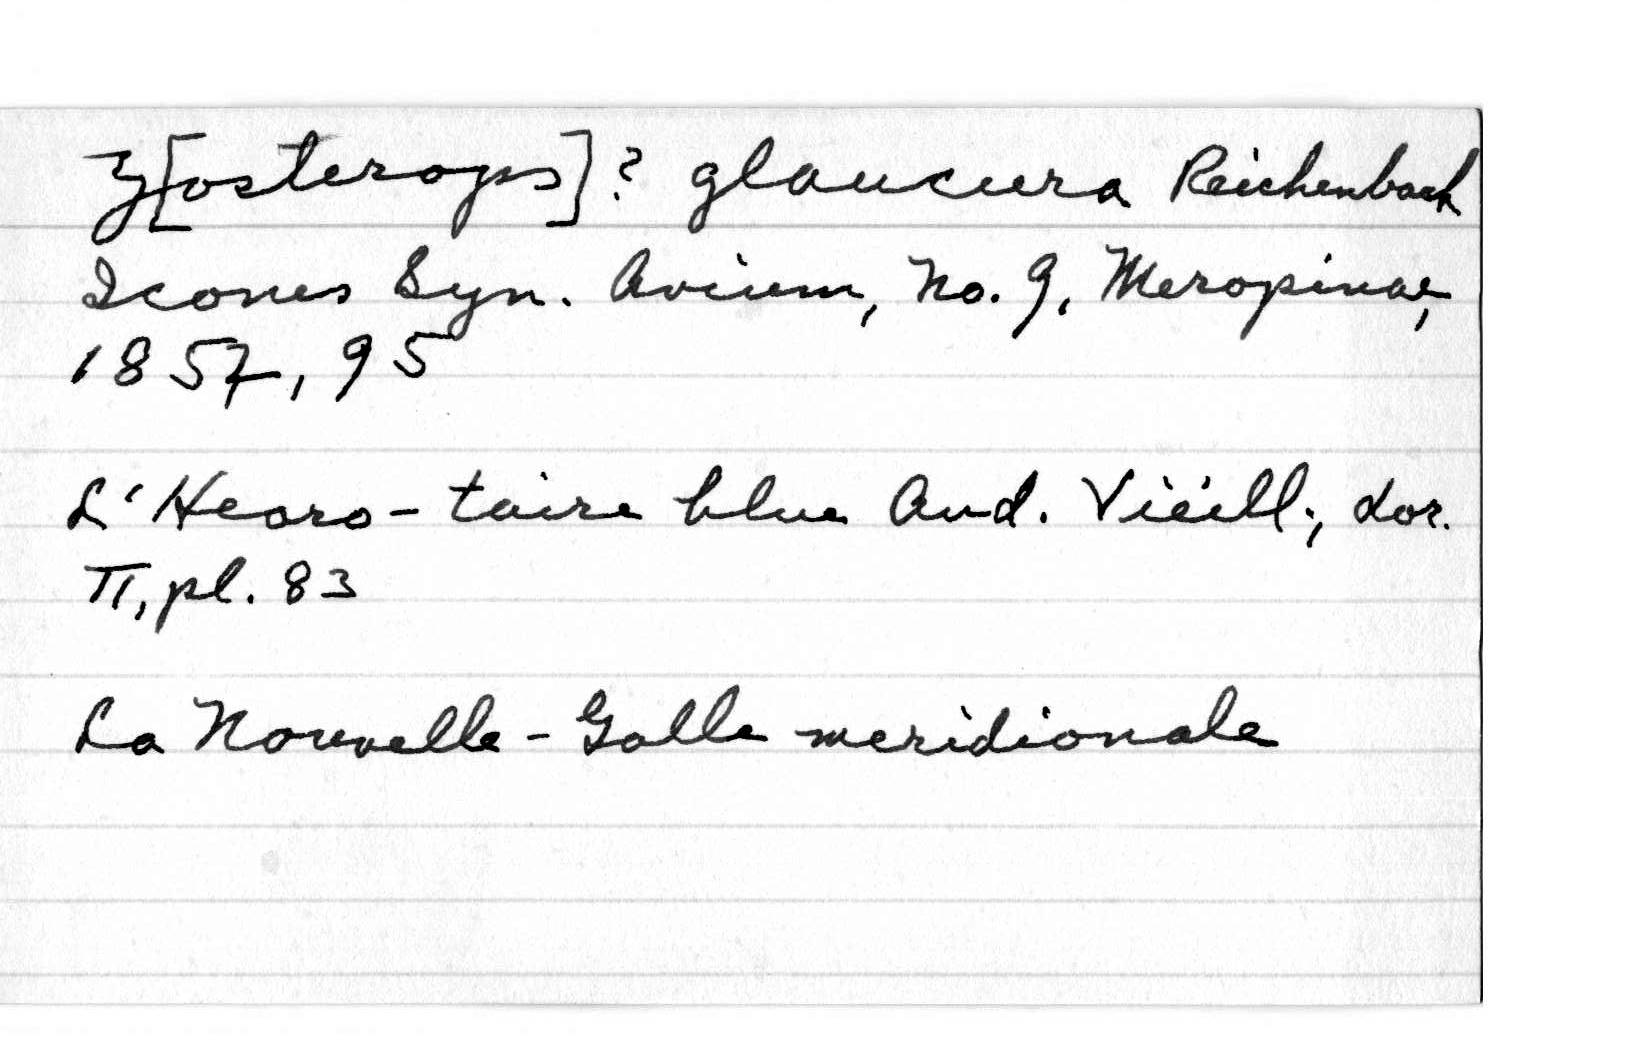 Z[osterops]? glaucura Reichenbach
Icones Syn. Avium, No. 9, Meropinae,
1857, 95
L'Heoro-taire blue Aud. Vieill., dor.
II, pl. 83
La Nouvelle-Galle meridionale